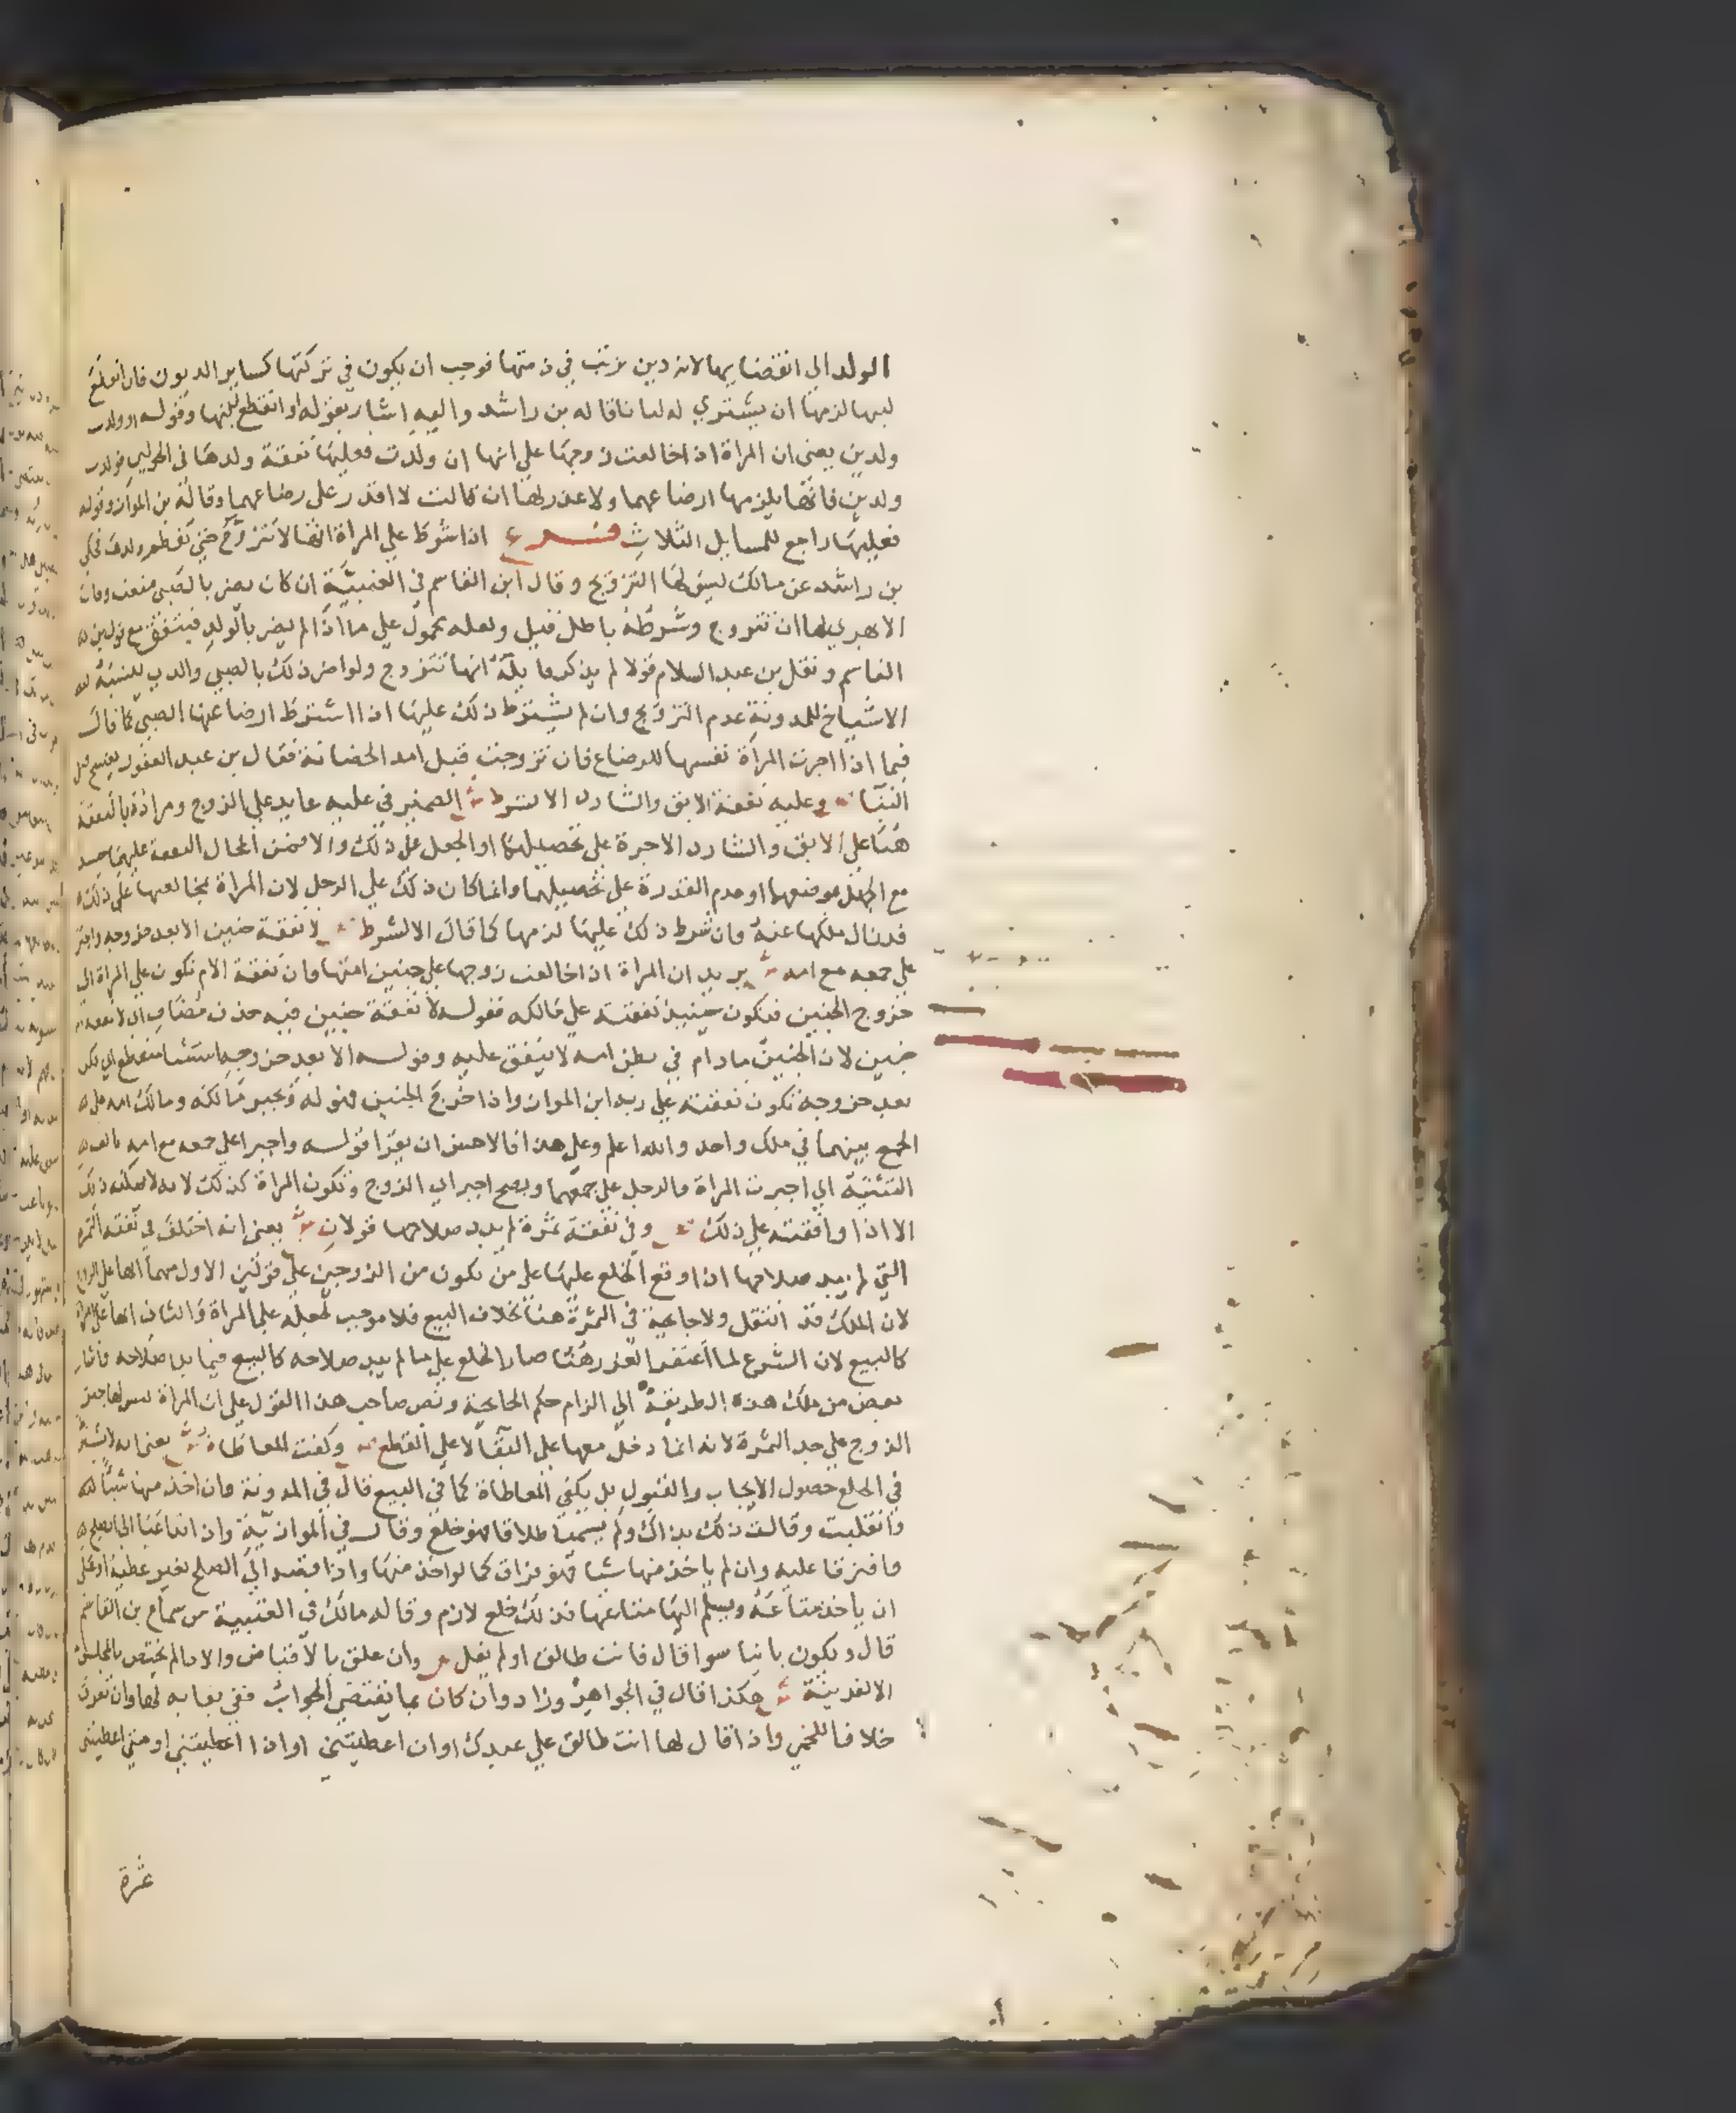 الولد الي انقضايها لانه دين ترتب في ذمتها فوجب ان يكون في تركتها كساير الديون فان انقطع
لبنها لزمها ان يشتري له لبنا قاله بن راشد واليه اشار بقوله او انقطع لبنها وقوله او ولدت
ولدين يعني ان المراة اذا خالعت زوجها علي انها ان ولدت فعليها نفقة ولدها في الحولين فولدت
ولدين فانها يلزمها ارضاعهما ولا عذر لها ان قالت لا اقدر علي رضاعهما وقاله بن المواز وقوله
فعليها راجع للمسايل الثلاث فرع اذا شرط علي المراة انها لا تتزوج حتي تفطم ولدها فحكي
بن راشد عن مالك ليس لها التزويج وقال ابن القاسم في العتبية ان كان يضر بالصبي منعت وقال
الابهري لها ان تتزوج وشرطه باطل قيل ولعله محمول علي ما اذا لم يضر بالولد فيتفق مع قول بن
القاسم ونقل بن عبد السلام قولا لم يذكر قايله انها تتزوج ولو اضر ذلك بالصبي والذي ينسبه
الاشياخ للمدونة عدم التزويج وان لم يشترط ذلك عليها اذا اشترط ارضاعها الصبي كما قال
فيما اذا اجرت المراة نفسها للرضاع فان تزوجت قبل امد الحضانة فقال بن عبد الغفور يفسخ قبل
البنا ص وعليه نفقة الابق والشارد الا لشرط ش الضمير في عليه عايد علي الزوج ومراده بالنفقة
هنا علي الابق والشارد الاجرة علي تحصيلهما او الجعل علي ذلك والا فمن المحال النفقة عليهما حينيذ
مع الجهل بموضعهما او عدم القدرة علي تحصيلهما وانما كان ذلك علي الرجل لان المراة بمخالعتها علي ذلك
قد زال ملكها عنه وان شرط ذلك عليها لزمها كما قال الا لشرط ص لا نفقة جنين الا بعد خروجه واجبر
علي جمعه مع امه ش يريد ان المراة اذا خالعت زوجها علي جنين امتها فان نفقة الام تكون علي المراة الي
خروج الجنين فتكون حينيذ نفقته علي مالكه فقوله لا نفقة جنين فيه حذف مضاف اي لا نفقة ام
جنين لان الجنين مادام في بطن امه لا ينفق عليه وقوله الا بعد خروجه استثنا منقطع اي لكن
بعد خروجه تكون نفقته علي ربه ابن المواز واذا خرج الجنين فهو له ويجبر مالكه ومالك امه علي
الجمع بينهما في ملك واحد والله اعلم وعلي هذا فالاحسن ان يقرا قوله واجبرا علي جمعه مع امه بالف
التثنية اي اجبرت المراة والرجل علي جمعهما ويصح اجبر اي الزوج وتكون المراة كذلك لانه لا يمكنه ذلك
الا اذا وافقته علي ذلك ص وفي نفقة ثمرة لم يبد صلاحها قولان ش يعني انه اختلف في نفقة الثمرة
التي لم يبد صلاحها اذا وقع الخلع عليها علي من تكون من الزوجين علي قولين الاول منهما انها علي الزوج
لان الملك قد انتقل ولا جايحة في الثمرة هنا بخلاف البيع فلا موجب لجعله علي المراة والثاني انها علي المراة
كالبيع لان الشرع لما اغتفر الغرر هنا صار الخلع علي ما لم يبد صلاحه كالبيع فيما بدا صلاحه واشار
بعض من ملك هذه الطريقة الي الزام حكم الجايحة ونص صاحب هذا القول علي ان المراة ليس لها جبر
الزوج علي جد الثمرة لانه انما دخل معها علي البقا لا علي القطع ص وكفت المعاطاة ش يعني انه لا يشترط
في الخلع حصول الايجاب والقبول بل يكفي المعاطاة كما في البيع قال في المدونة وان اخذ منها شيئا
وانقلبت وقالت ذلك بذاك ولم يسميا طلاقا فهو خلع وقال في الموازية وان تداعيا الي الصلح
وافترقا عليه وان لم ياخذ منها شيا فهو فراق كما لو اخذ منها واذا قصد الي الصلح بغير عطية او علي
ان ياخذ متاعه ويسلم اليها متاعها فذلك خلع لازم وقاله مالك في العتبية من سماع بن القاسم
قال ويكون باينا سوا قال فانت طالق او لم يقل ص وان علق بالاقباض والادا لم يختص بالمجلس
الا لقرينة ش هكذا قال في الجواهر وزاد وان كان بما يقتضي الجواب
خلافا للخمي واذا قال لها انت طالق علي عبدك او ان اعطيتني او اذا اعطيتني او متي اعطيتني
عشرة